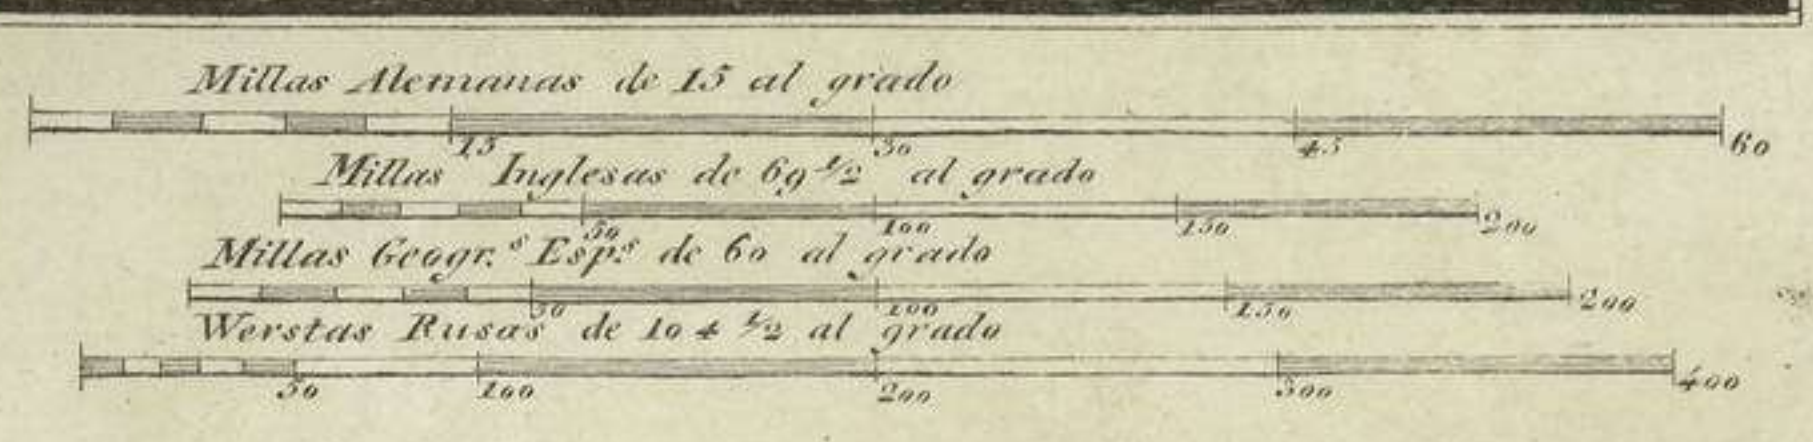 Millas Alemanas de 15 al grado
15 30 45 60
Millas Inglesas de 69 1/2 al grado
50 100 150 200
Millas Geogr.s Esp.s de 60 al grado
50 100 150 200
Werstas Rusas de 104 1/2 al grado
50 100 200 300 400